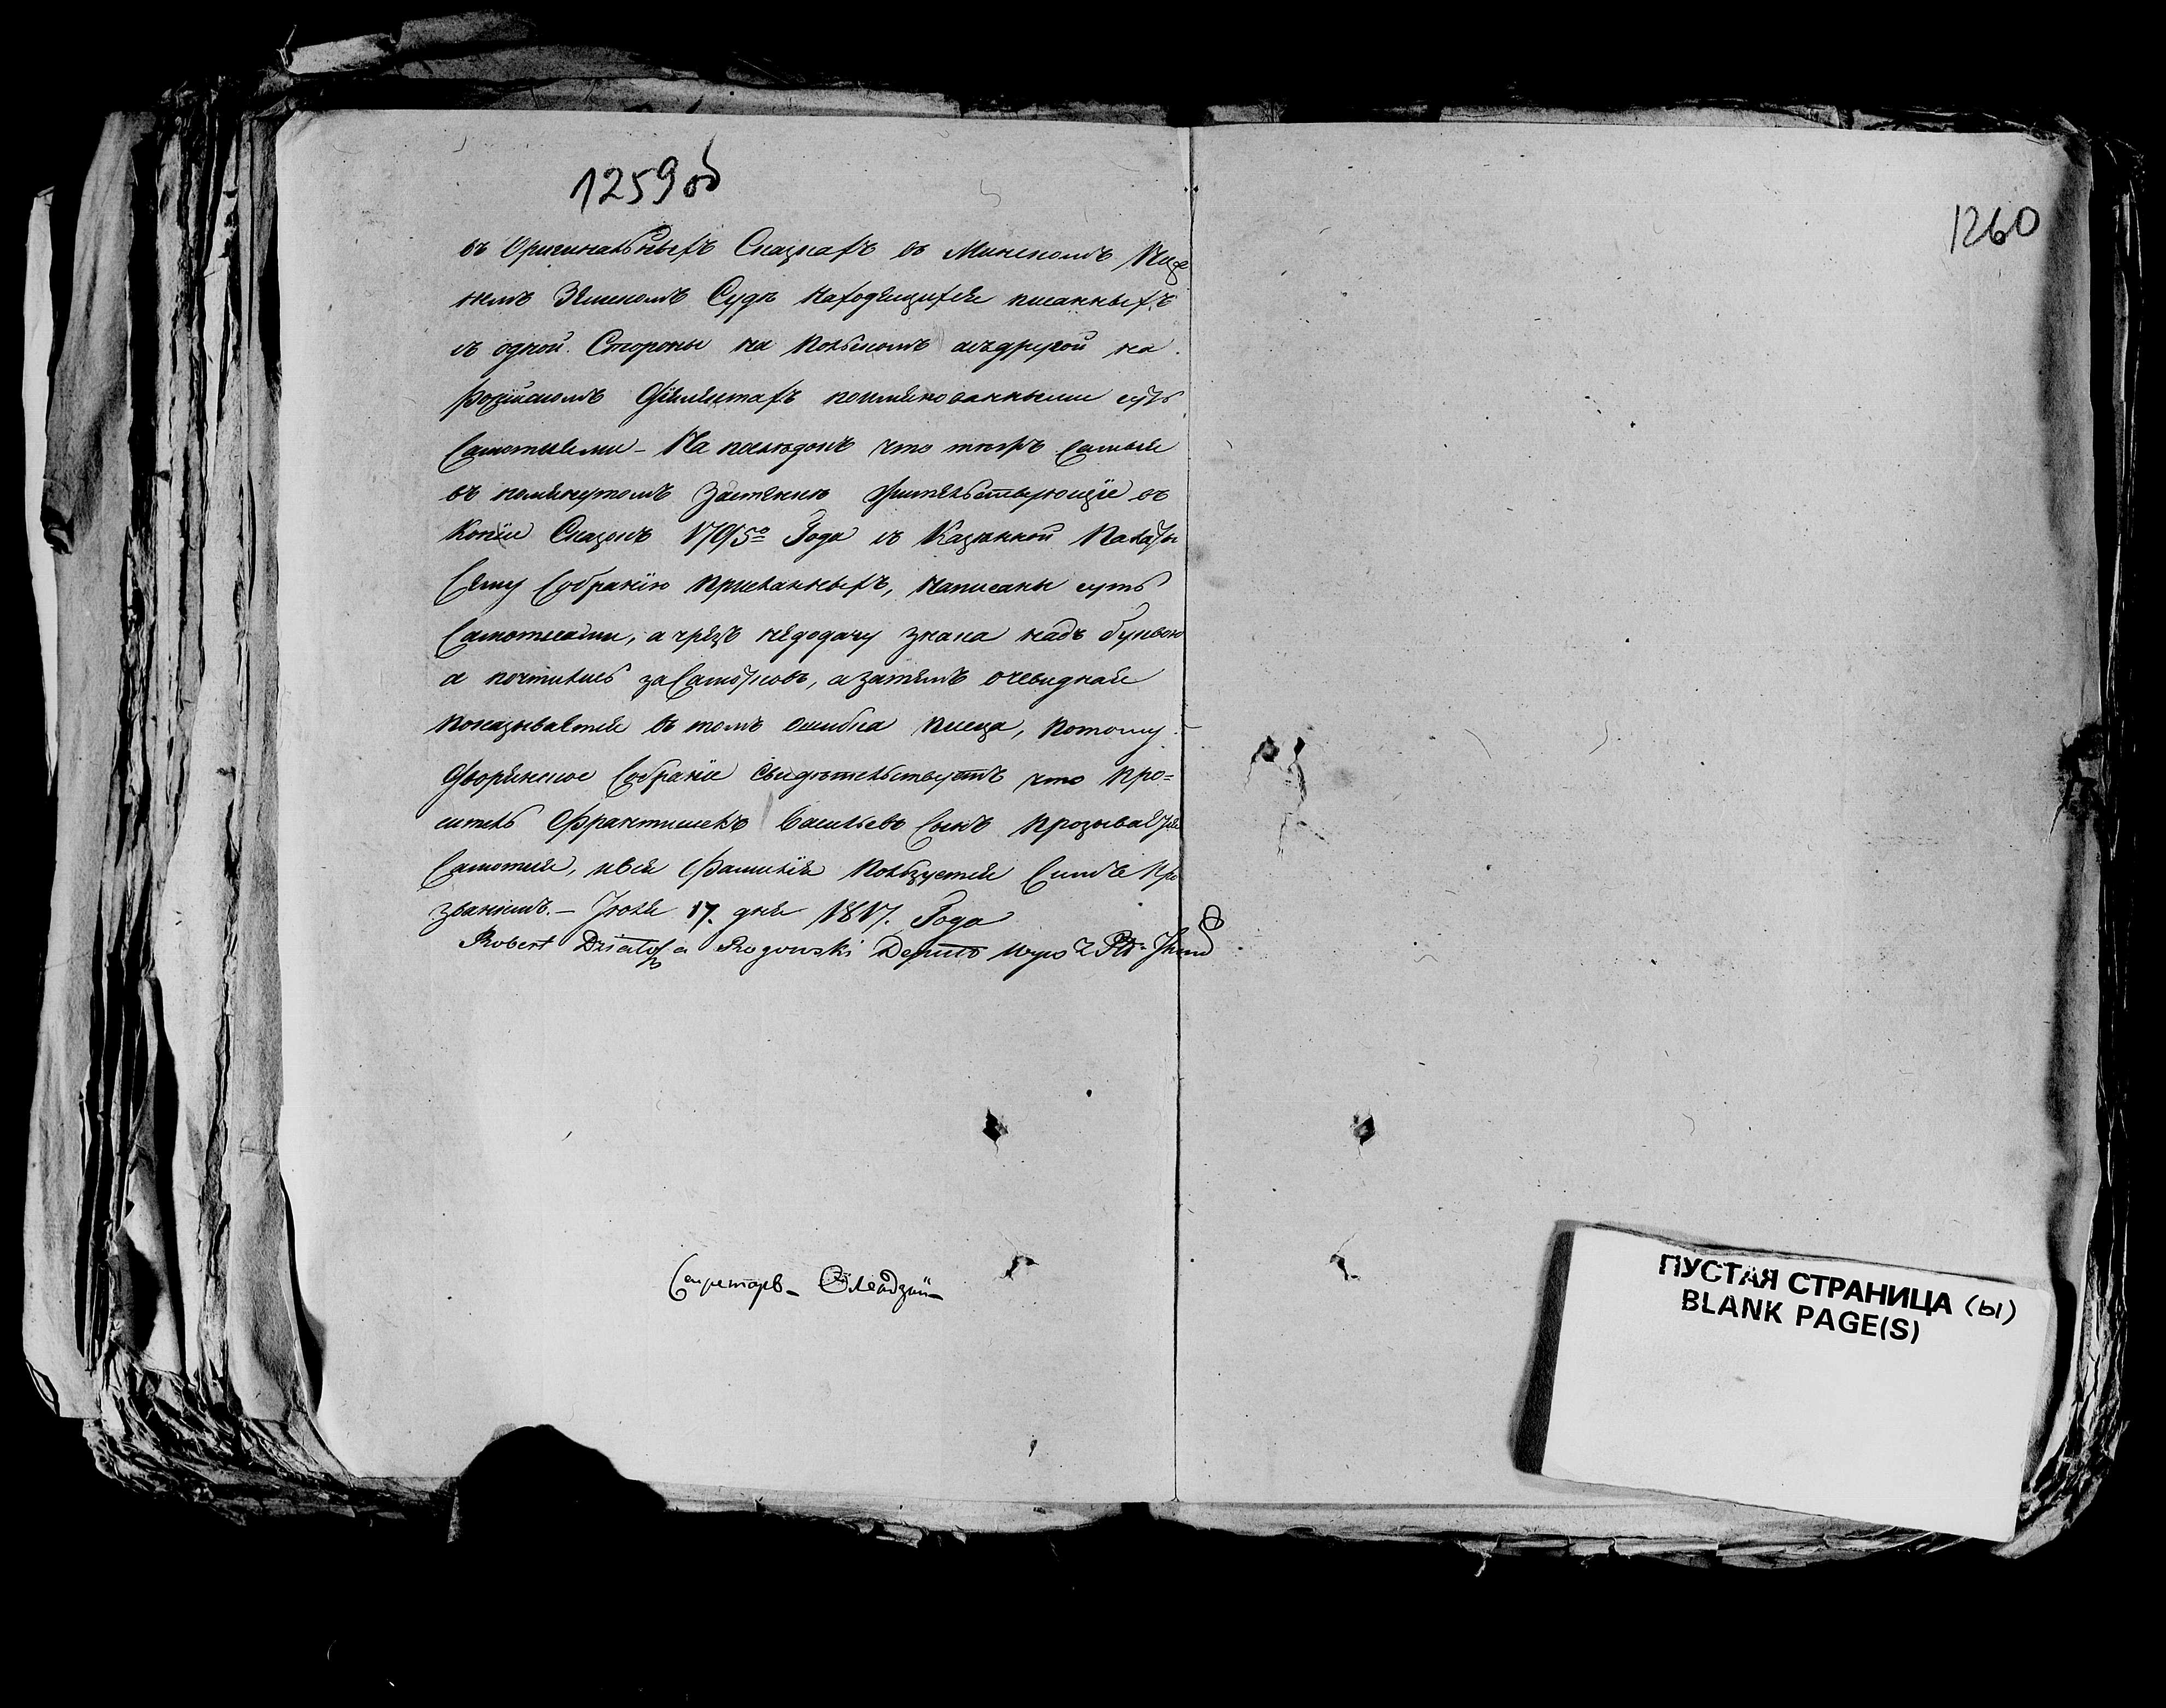 1259 об
въ Оригинальныхъ Сказкахъ въ Минскомъ Ниж
немъ Земскомъ Судѣ находящихся писанныхъ
съ одной Стороны на Польскомъ а съ другой на
Россійскомъ Діялектахъ поимянованными суть
Самотыями - На послѣдокъ что тѣже самые
въ помянутомъ Застѣнкѣ жительствующіе въ
Копіи Сказокъ 1795го Года съ Казенной Палаты
Сему Собранію присланныхъ, написаны суть
Самотыями, а чрезъ недодачу знака надъ буквою
а почтились за Самотыовъ, а затемъ очевидная
показывается въ томъ ошибка писца, потому
Дворянское Собраніе свидѣтельствуетъ что про=
ситель Францишекъ Васильевъ Сынъ прозывается
Самотыя, и вся Фамилія пользуется Симъ про
званіемъ. - Іюля 17. дня 1817. Года
Robert Rogowski Deput
Секретарь
1260
ПУСТАЯ СТРАНИЦА (Ы)
BLANK PAGE(S)